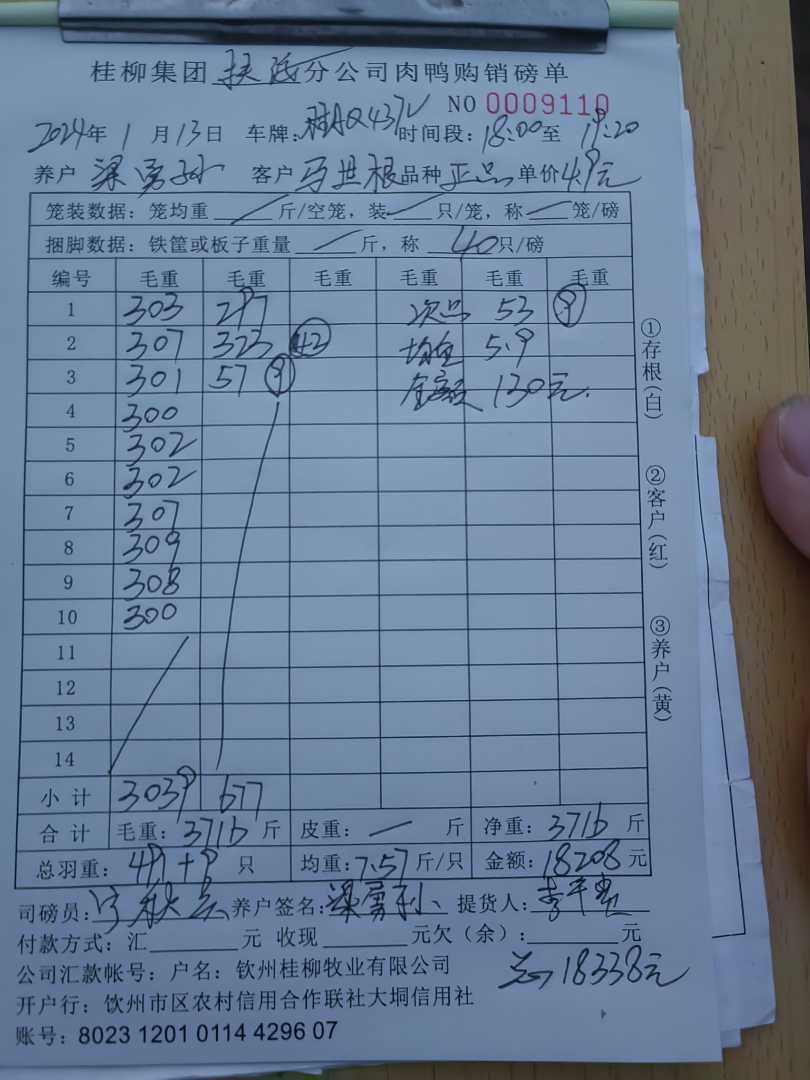 桂柳集团 扶绥 分公司肉鸭购销磅单
NO 0009110
2024年 1 月 13日 车牌: 桂AQ437V 时间段: 18:00至 19:20
养户 梁勇孙 客户 马世根 品种 正品 单价 4.9元
笼装数据: 笼均重 / 斤/空笼, 装 / 只/笼, 称 / 笼/磅
捆脚数据: 铁筐或板子重量 / 斤, 称 40只/磅
编号 毛重 毛重 毛重 毛重 毛重 毛重
1 303 297 次品 53 ⑨
2 307 323 ㊷ 均重 5.9
3 301 57 ⑨ 金额 130元.
4 300
5 302
6 302
7 307
8 309
9 308
10 300
11
12
13
14
小 计 3039 677
合 计 毛重: 3716 斤 皮重: — 斤 净重: 3716 斤
总羽重: 491+9 只 均重: 7.57 斤/只 金额: 18208 元
司磅员: 养户签名: 梁勇孙 提货人: 李平
付款方式: 汇 元 收现 元欠(余): 元
总 18338元
公司汇款帐号: 户名: 钦州桂柳牧业有限公司
开户行: 钦州市区农村信用合作联社大垌信用社
账号: 8023 1201 0114 4296 07
①存根(白)
②客户(红)
③养户(黄)